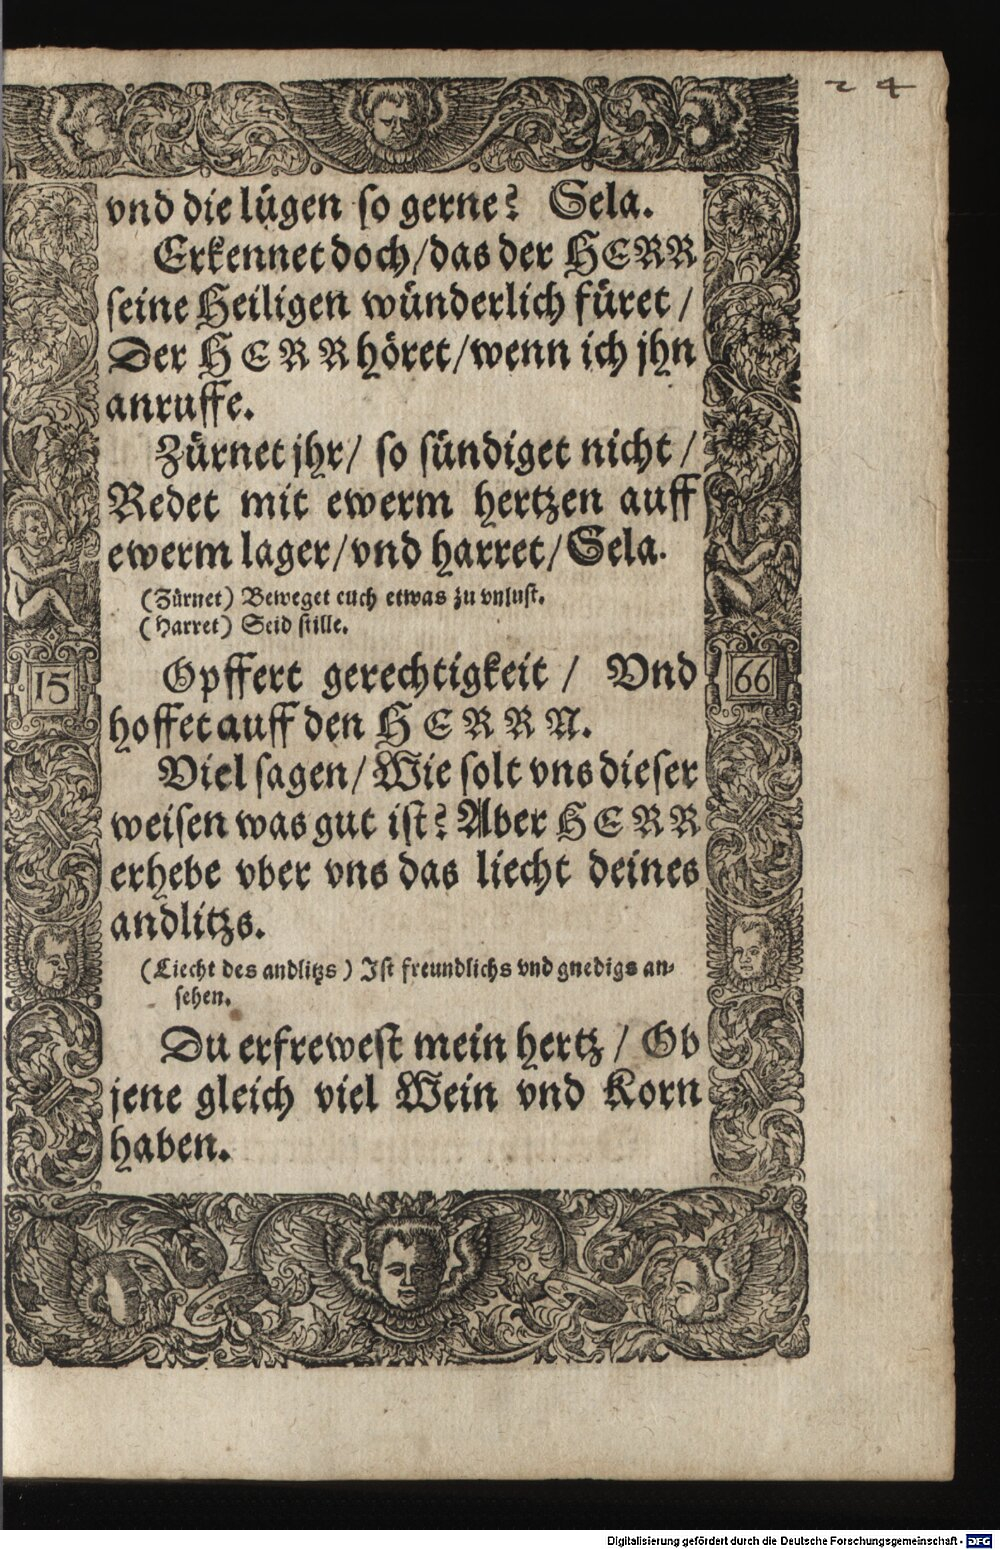 24
vnd die lügen so gerne? Sela.
Erkennet doch/das der HERR
seine Heiligen wünderlich füret /
Der HERR höret/wenn ich jhn
anruffe.
Zürnet jhr/ so sündiget nicht /
Redet mit ewerm hertzen auff
ewerm lager/vnd harret/Sela.
(Zürnet) Beweget euch etwas zu vnlust.
(Harret) Seid stille.
Opffert gerechtigkeit / Vnd
15 66
hoffet auff den HERRN.
Viel sagen/Wie solt vns dieser
weisen was gut ist? Aber HERR
erhebe vber vns das liecht deines
andlitzs.
(Liecht des andlitzs) Ist freundlichs vnd gnedigs an-
sehen.
Du erfrewest mein hertz / Ob
jene gleich viel Wein vnd Korn
haben.
Digitalisierung gefördert durch die Deutsche Forschungsgemeinschaft - DFG